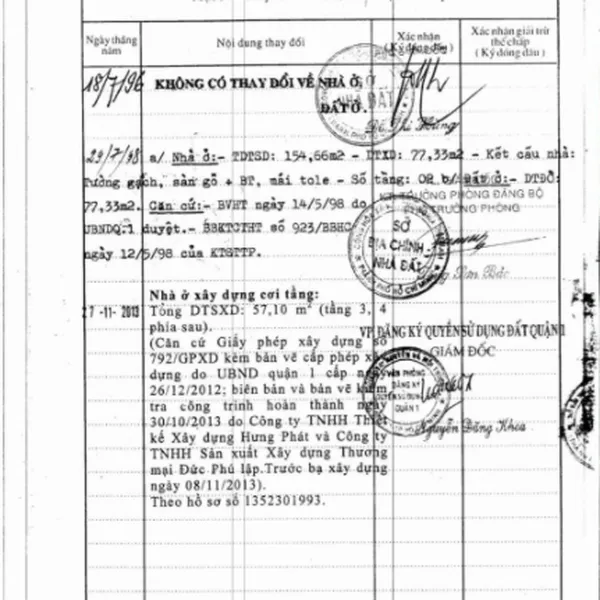 Ngày tháng năm
Nội dung thay đổi
Xác nhận (Ký đóng dấu)
Xác nhận giải trừ thế chấp (Ký đóng dấu)
18/7/96 KHÔNG CÓ THAY ĐỔI VỀ NHÀ Ở,
ĐẤT Ở.
29/7/98 a/ Nhà ở:- TDTSD: 154,66m2 - DTXD: 77,33m2 - Kết cấu nhà:
Tường gạch, sàn gỗ + BT, mái tole - Số tầng: 02 b/ Đất ở:- DTĐO:
77,33m2. Căn cứ:- BVHT ngày 14/5/98 do
TRƯỞNG PHÒNG ĐĂNG BỘ
PHÓ TRƯỞNG PHÒNG
UBNDQ.1 duyệt.- BBKTCTHT số 923/BBHC
ngày 12/5/98 của KTSTTP.
SỞ
ĐỊA CHÍNH
NHÀ ĐẤT
27 -11- 2013
Nhà ở xây dựng cơi tầng:
Tổng DTSXD: 57,10 m² (tầng 3, 4
phía sau).
(Căn cứ Giấy phép xây dựng số
792/GPXD kèm bản vẽ cấp phép xây
dựng do UBND quận 1 cấp ngày
26/12/2012; biên bản và bản vẽ kiểm
tra công trình hoàn thành ngày
30/10/2013 do Công ty TNHH Thiết
kế Xây dựng Hưng Phát và Công ty
TNHH Sản xuất Xây dựng Thương
mại Đức Phú lập.Trước bạ xây dựng
ngày 08/11/2013).
Theo hồ sơ số 1352301993.
VP. ĐĂNG KÝ QUYỀN SỬ DỤNG ĐẤT QUẬN 1
GIÁM ĐỐC
VĂN PHÒNG
ĐĂNG KÝ
QUYỀN SỬ DỤNG
QUẬN 1
Nguyễn Đăng Khoa